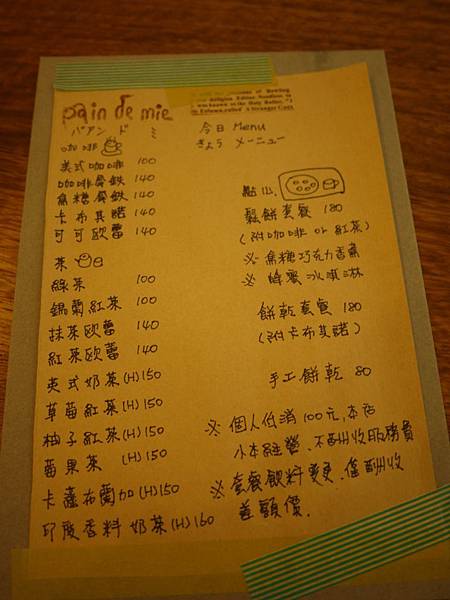 pain de mie
パアン ド ミ
咖啡
美式咖啡 100
咖啡歐蕾 140
焦糖歐蕾 140
卡布其諾 140
可可歐蕾 140
茶
綠茶 100
錫蘭紅茶 100
抹茶歐蕾 140
紅茶歐蕾 140
英式奶茶(H)150
草莓紅茶(H)150
柚子紅茶(H)150
莓果茶 (H)150
卡薩布蘭加(H)150
印度香料奶茶(H)160
今日 Menu
きょう メニュー
點心
鬆餅套餐 180
(附咖啡 or 紅茶)
※ 焦糖巧克力香蕉
※ 蜂蜜冰淇淋
餅乾套餐 180
(附卡布其諾)
手工餅乾 80
※ 個人低消100元,本店
小本經營、不酬收服務費
※ 套餐飲料變更、僅酬收
差額價.